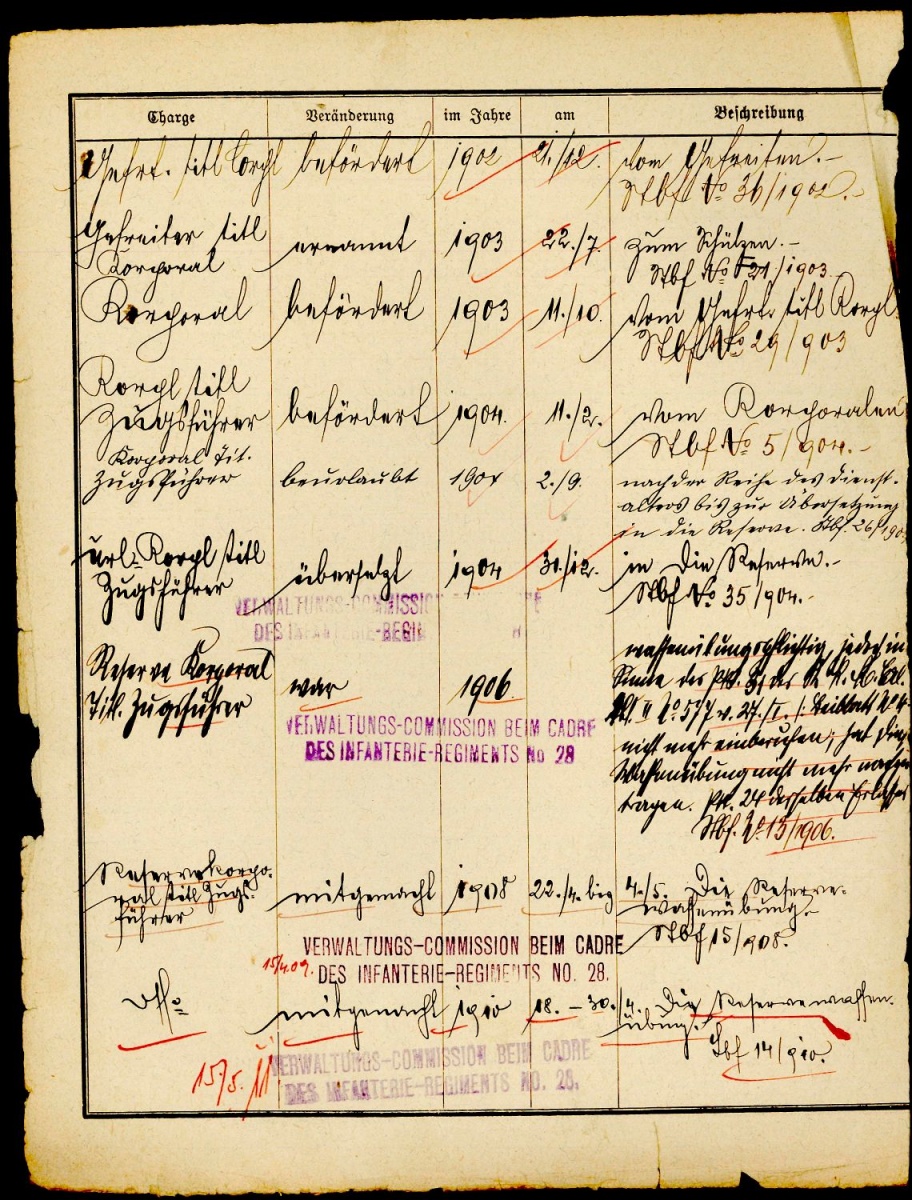 Charge Veränderung im Jahre am Beschreibung
Gefrt. titl Corpl befördert 1902 21./12. vom Gefreiten.-
Stbf No 36/1902.-
Gefreiter titl ernannt 1903 22./7. zum Schützen.-
Korporal Stbf No 21/1903.
Korporal befördert 1903 11./10. vom Gefrt. titl Korpl
Stbf No 29/903
Korpl titl
Zugsführer befördert 1904. 11./2. vom Korporalen
Stbf No 5/904.-
Korporal Tit.
Zugsführer beurlaubt 1904 2./9. nach der Reihe des Dienst-
alters bis zur Übersetzung
in die Reserve. Stbf. 26/190
url. Korpl titl übersetzt 1904 31./12. in die Reserve.-
Zugsführer Stbf No 35/904.-
VERWALTUNGS-COMMISSION
DES INFANTERIE-REGI
Reserve Korporal waffenübungspflichtig, jedoch im
Titl. Zugsführer war 1906 Sinne des Pkt. des K. K.
No 577 v. 27./I. Beiblatt No 4
VERWALTUNGS-COMMISSION BEIM CADRE
DES INFANTERIE-REGIMENTS No 28
nicht mehr einberufen; hat diese
Waffenübung nicht mehr nachzu
tragen. Pkt. 24 desselben Erlasses
Stbf. No 13/1906.
Reservekorpo-
ral titl Zugs- mitgemacht 1908 22./4. bis 4./5. Die Reserve-
führer waffenübung.-
Stbf 15/908.
VERWALTUNGS-COMMISSION BEIM CADRE
15/4.09. DES INFANTERIE-REGIMENTS NO. 28.
dtto mitgemacht 1910 18. - 30./4. Die Reservewaffen-
übung.-
Stbf 14/910.
VERWALTUNGS-COMMISSION BEIM CADRE
15/5. 11 DES INFANTERIE-REGIMENTS NO. 28.